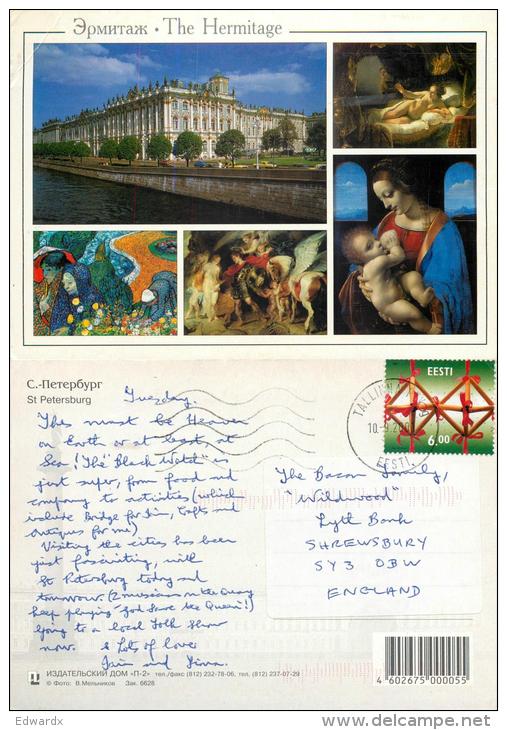 Эрмитаж · The Hermitage
С.-Петербург
St Petersburg
Tuesday.
This must be Heaven
on Earth or at least at
Sea! The "Black Watch" is
just super, from food and
company to activities (which
include Bridge for Iain, Crafts and
Antiques for me)
Visiting the cities has been
just fascinating, with
St Petersburg today and
tomorrow. (2 musicians on the Quay
keep playing "God Save the Queen"!)
Going to a local Folk Show
now. & Lots of love
Iain and
TALLINN
10.-9.200
EESTI
EESTI
6.00
The Bacon Family,
"Wildwood"
Lyth Bank
SHREWSBURY
SY3 0BW
ENGLAND
ИЗДАТЕЛЬСКИЙ ДОМ «П-2» тел./факс (812) 232-78-06, тел. (812) 237-07-29
© Фото: В.Мельников Зак. 6628
4 602675 000055
Edwardx
www.delcampe.net